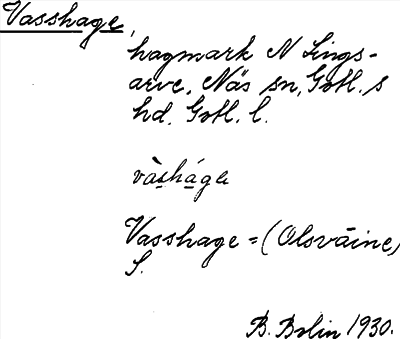 Vasshage,
hagmark N Lings-
arve, Näs sn, Gotl. s
hd. Gotl. l.
vàshágɛ
Vasshage = (Olsväine)
S.
B. Bolin 1930.